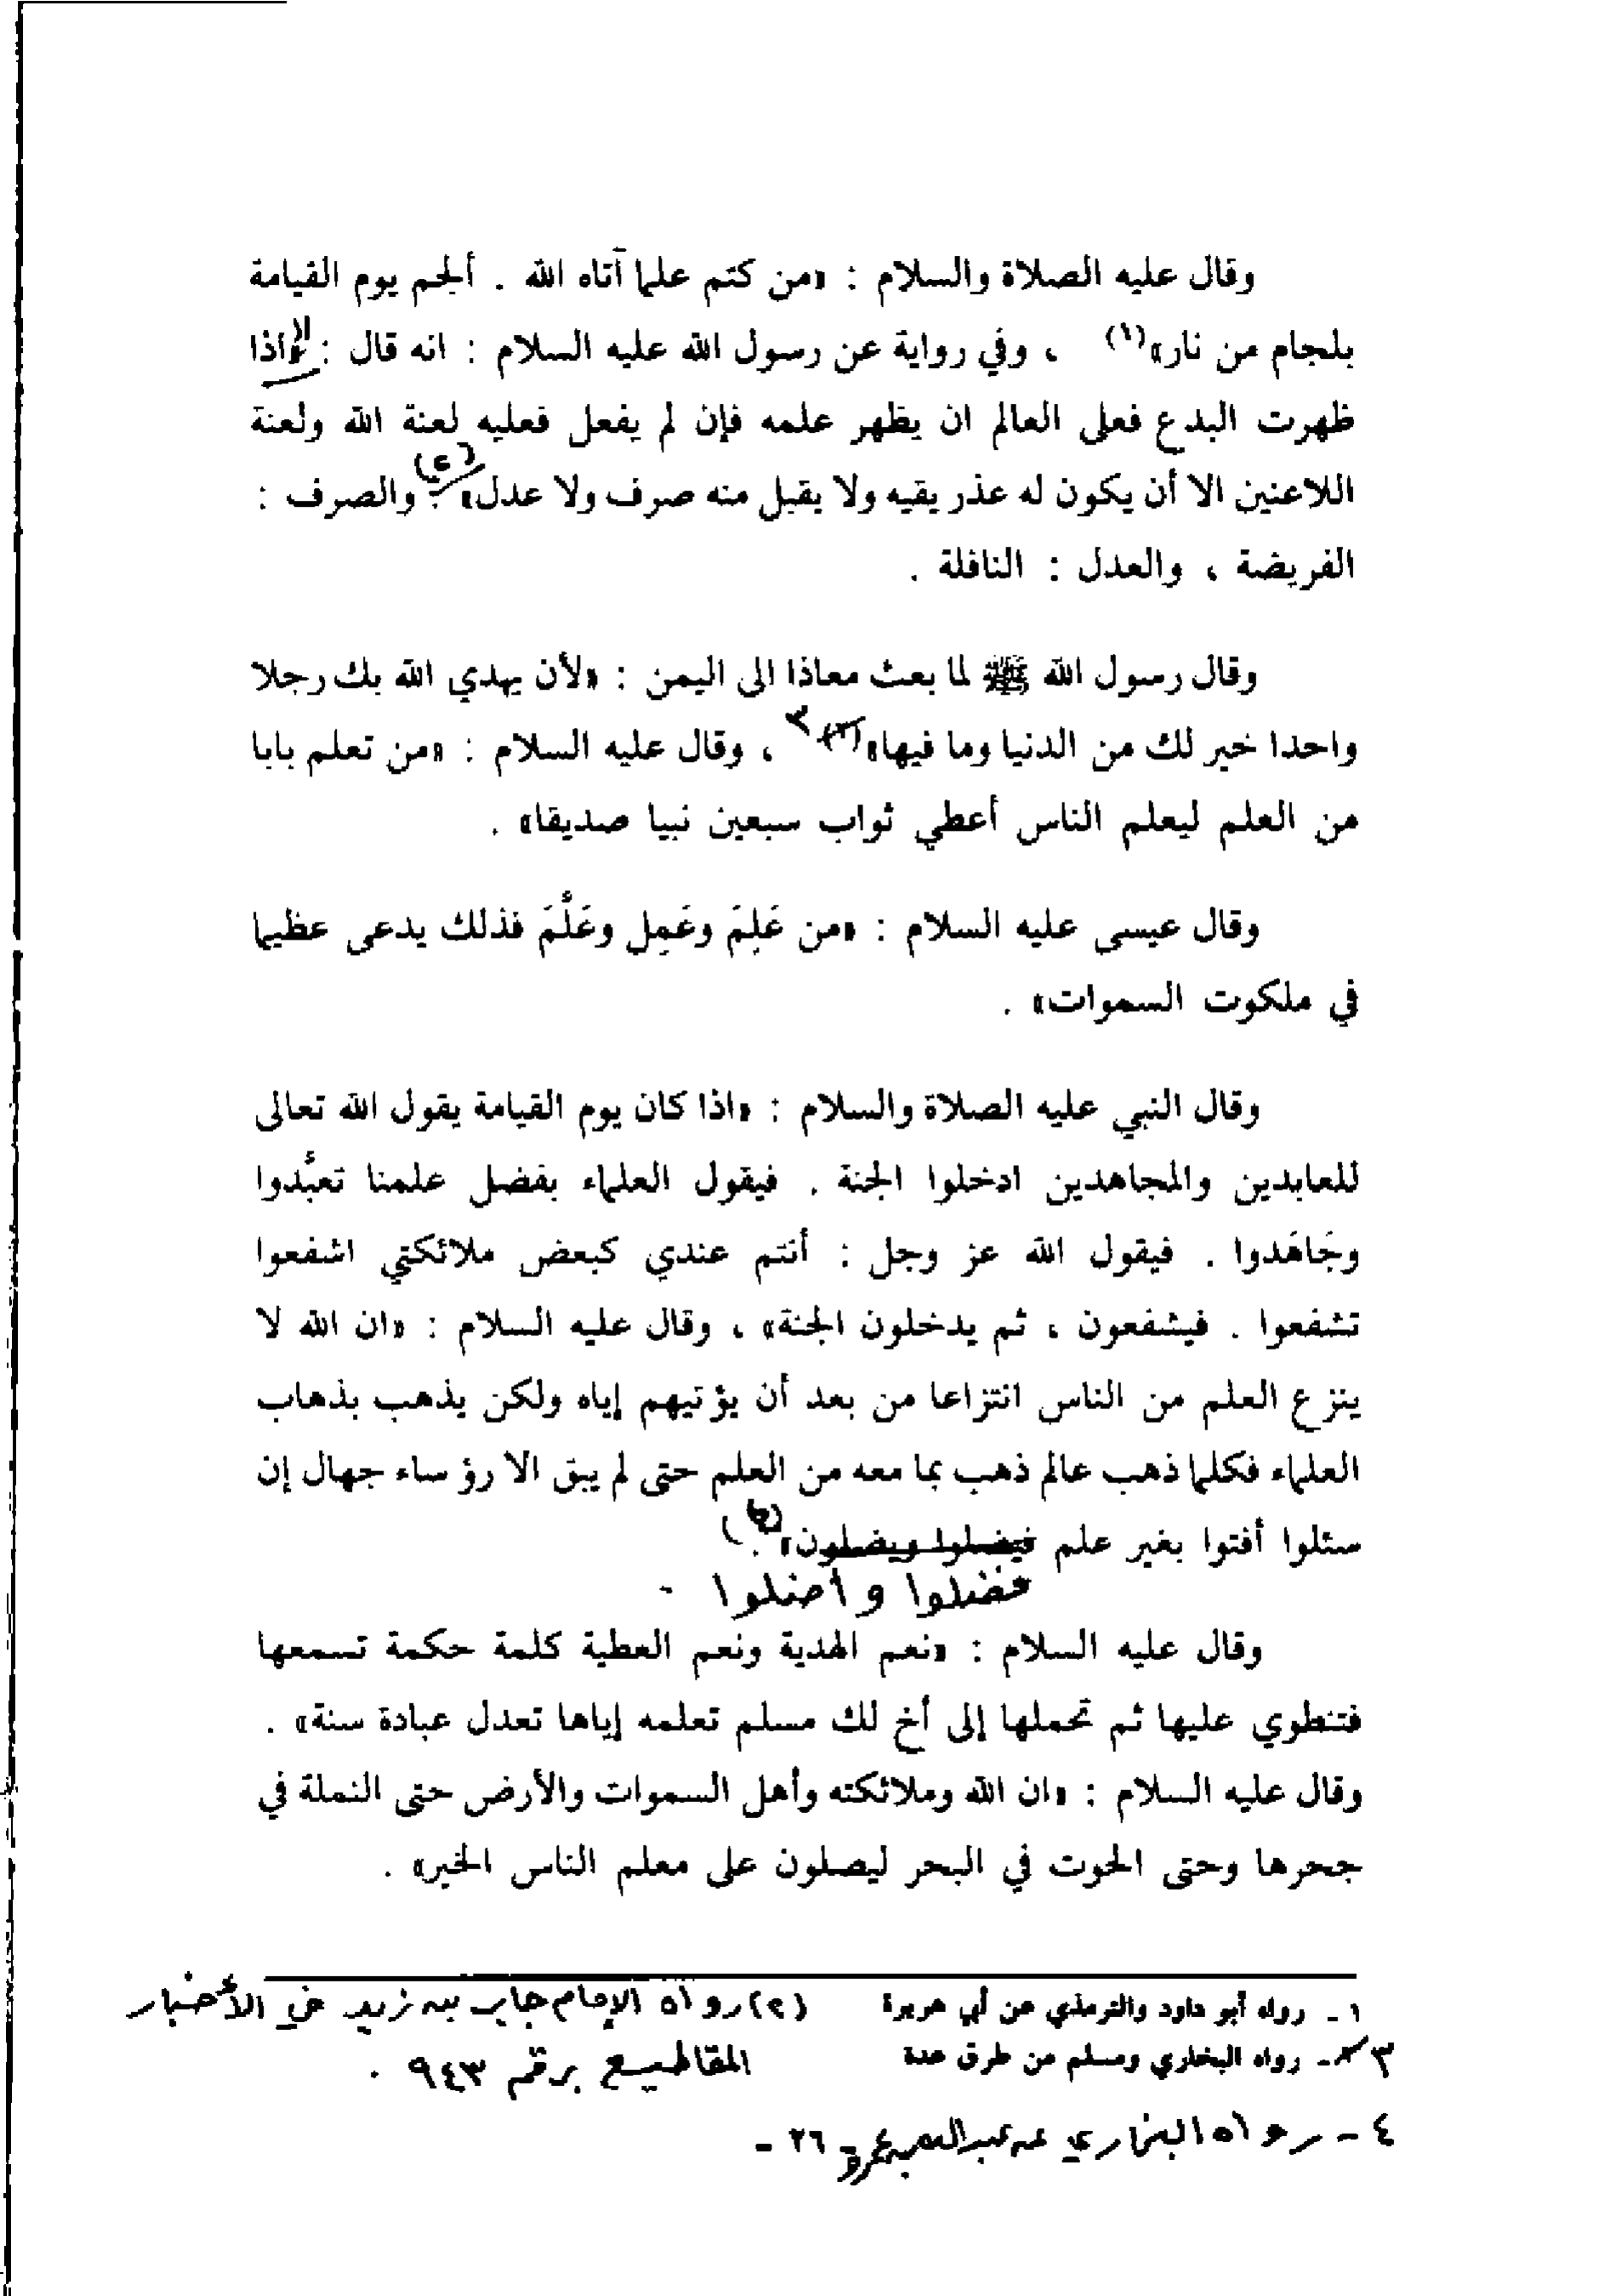 وقال عليه الصلاة والسلام : «من كتم علما آتاه الله . ألجم يوم القيامة
بلجام من نار»(١) ، وفي رواية عن رسول الله عليه السلام : انه قال : «اذا
ظهرت البدع فعلى العالم ان يظهر علمه فإن لم يفعل فعليه لعنة الله ولعنة
اللاعنين الا أن يكون له عذر يقيه ولا يقبل منه صرف ولا عدل»(٢) . والصرف :
الفريضة ، والعدل : النافلة .
وقال رسول الله ﷺ لما بعث معاذا الى اليمن : «لأن يهدي الله بك رجلا
واحدا خير لك من الدنيا وما فيها»(٢) ٣ ، وقال عليه السلام : «من تعلم بابا
من العلم ليعلم الناس أعطي ثواب سبعين نبيا صديقا» .
وقال عيسى عليه السلام : «من عَلِمَ وعَمِل وعَلَّمَ فذلك يدعى عظيما
في ملكوت السموات» .
وقال النبي عليه الصلاة والسلام : «اذا كان يوم القيامة يقول الله تعالى
للعابدين والمجاهدين ادخلوا الجنة . فيقول العلماء بفضل علمنا تعبُّدوا
وجَاهَدوا . فيقول الله عز وجل : أنتم عندي كبعض ملائكتي اشفعوا
تشفعوا . فيشفعون ، ثم يدخلون الجنة» ، وقال عليه السلام : «ان الله لا
ينزع العلم من الناس انتزاعا من بعد أن يؤتيهم إياه ولكن يذهب بذهاب
العلماء فكلما ذهب عالم ذهب بما معه من العلم حتى لم يبق الا رؤساء جهال إن
سئلوا أفتوا بغير علم فيضلوا ويضلون» .
فضلوا وأضلوا -
وقال عليه السلام : «نعم الهدية ونعم العطية كلمة حكمة تسمعها
فتنطوي عليها ثم تحملها إلى أخ لك مسلم تعلمه إياها تعدل عبادة سنة» .
وقال عليه السلام : «ان الله وملائكته وأهل السموات والأرض حتى النملة في
جحرها وحتى الحوت في البحر ليصلون على معلم الناس الخير» .
١ - رواه أبو داود والترمذي عن أبي هريرة
(٢) رواه الإمام جابر بن زيد في الأخبار
٣ - رواه البخاري ومسلم من طرق عدة
المقاطيع برقم ٩٤٣ .
٤ - رواه البخاري عن عبد الله بن عمرو
- ٢٦ -